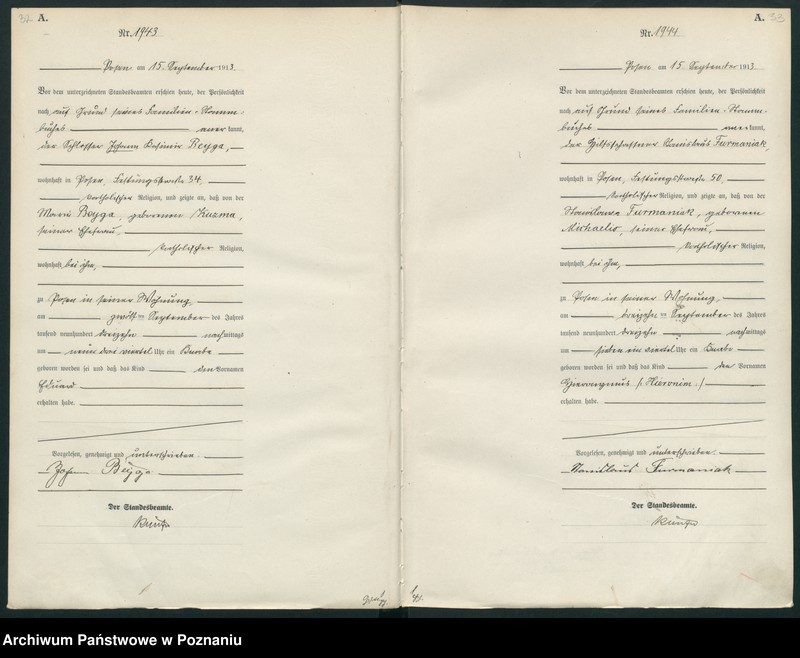 32 A.
Nr. 1943
Posen am 15. September 1913.
Vor dem unterzeichneten Standesbeamten erschien heute, der Persönlichkeit
nach auf Grund seines Familien-Stamm-
buches aner kannt,
der Schlosser Johann Kasimir Beyga,
wohnhaft in Posen, Festungsstraße 34,
katholischer Religion, und zeigte an, daß von der
Marie Beyga, geborenen Kuzma,
seiner Ehefrau,
katholischer Religion,
wohnhaft bei ihm,
zu Posen in seiner Wohnung,
am zwölften September des Jahres
tausend neunhundert dreizehn nachmittags
um neun drei viertel Uhr ein Knabe
geboren worden sei und daß das Kind den Vornamen
Eduard
erhalten habe.
Vorgelesen, genehmigt und unterschrieben.
Johann Beyga
Der Standesbeamte.
A. 33
Nr. 1944
Posen am 15. September 1913.
Vor dem unterzeichneten Standesbeamten erschien heute, der Persönlichkeit
nach auf Grund seines Familien-Stamm-
buches aner kannt,
der Hilfsschaffner Stanislaus Furmaniak,
wohnhaft in Posen, Festungsstraße 50,
katholischer Religion, und zeigte an, daß von der
Stanislawa Furmaniak, geborenen
Michaelis, seiner Ehefrau,
katholischer Religion,
wohnhaft bei ihm,
zu Posen in seiner Wohnung,
am dreizehnten September des Jahres
tausend neunhundert dreizehn nachmittags
um sieben ein viertel Uhr ein Knabe
geboren worden sei und daß das Kind den Vornamen
Hieronymus /: Hieronim :/
erhalten habe.
Vorgelesen, genehmigt und unterschrieben.
Stanislaus Furmaniak
Der Standesbeamte.
Archiwum Państwowe w Poznaniu